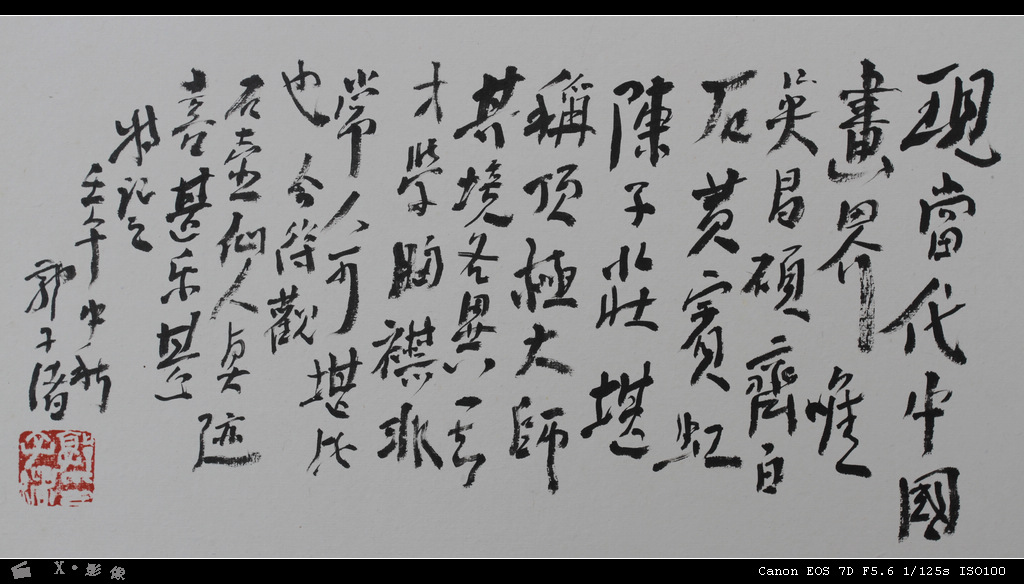 現當代中國
畫界唯
吳昌碩齊白
石黄賓虹
陳子壯堪
稱頂極大師
其境各異
才學胸襟非
常人可堪比
也今得觀
石壺仙人真迹
喜甚乐甚
特記之
壬午中秋
郭子緒
X·影像
Canon EOS 7D F5.6 1/125s ISO100